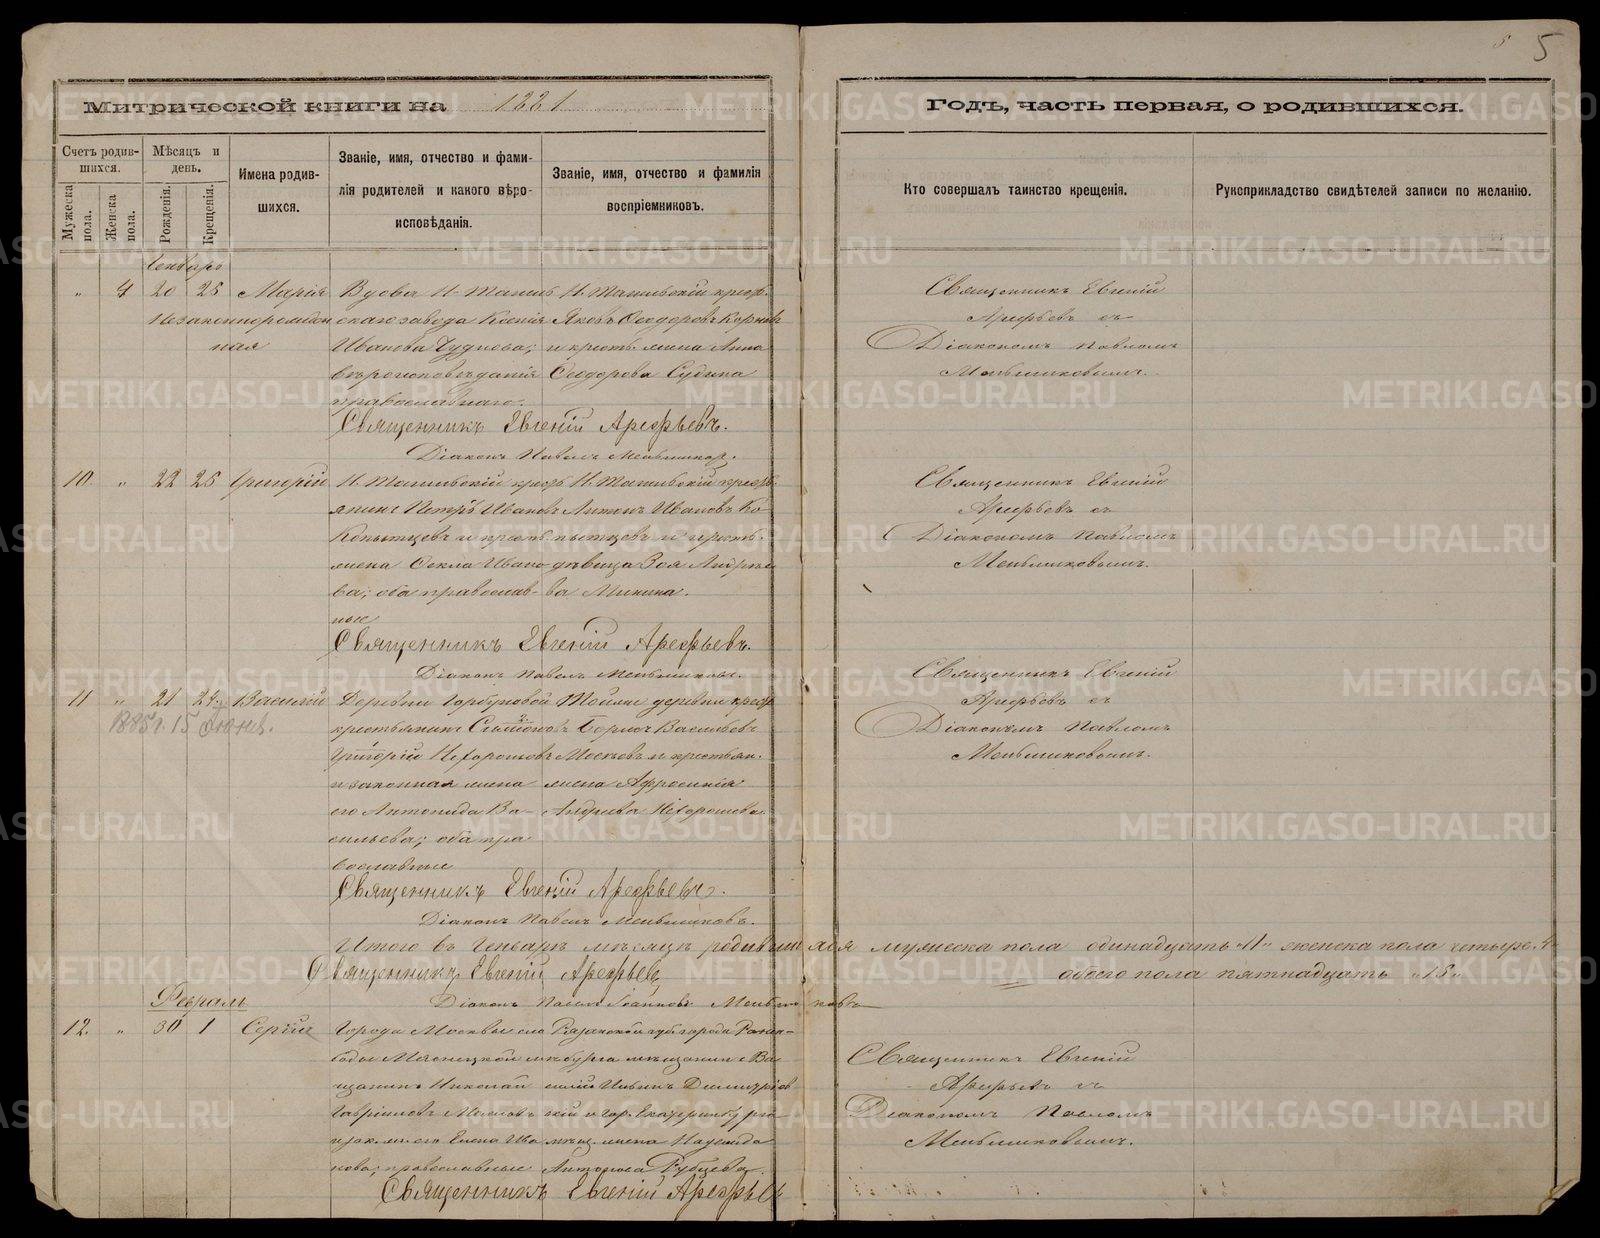 5
Митрической книги на 1881
Годъ, часть первая, о родившихся.
Счетъ родившихся.
Мужеска пола.
Женска пола.
Мѣсяцъ и день.
Рожденія.
Крещенія.
Имена родившихся.
Званіе, имя, отчество и фамилія родителей и какого вѣроисповѣданія.
Званіе, имя, отчество и фамилія воспріемниковъ.
Кто совершалъ таинство крещенія.
Рукоприкладство свидѣтелей записи по желанію.
Генварь
" 4 20 25 Марія
Незаконнорожден
ная
Вдова Н. Тагиль
скаго завода Ксенія
Иванова Чуднова;
вѣроисповѣданія
православнаго.
Н. Тагильскій крест.
Яковъ Ѳеодоровъ
и крест. жена Анна
Ѳеодорова
Священникъ Евгеній
Арефьевъ съ
Діакономъ Павломъ
Меньшиковымъ.
Священникъ Евгеній Арефьевъ.
Діаконъ Павелъ Меньшиковъ.
10 " 22 25 Григорій
Н. Тагильскій крест
янинъ Петръ Ивановъ
Копытцевъ и крест.
жена Ѳекла Ивано
ва; оба православ-
ные
Н. Тагильскій крест.
Антонъ Ивановъ Ко-
пытцевъ и крест.
дѣвица Зоя Андрее
ва Минина.
Священникъ Евгеній
Арефьевъ съ
Діакономъ Павломъ
Меньшиковымъ.
Священникъ Евгеній Арефьевъ.
Діаконъ Павелъ Меньшиковъ.
11 " 21 27 Василій
1885 г. 15
Деревни Горбуновой
крестьянинъ
Григорій Нехорошковъ
и законная жена
его Антонида Ва-
сильева; оба пра
вославные
Тойже деревни крест
Борисъ Васильевъ
и крестьян.
жена Афросинія
Андреева Нехорошева
Священникъ Евгеній
Арефьевъ съ
Діакономъ Павломъ
Меньшиковымъ.
Священникъ Евгеній Арефьевъ.
Діаконъ Павелъ Меньшиковъ.
Итого въ Генварѣ мѣсяцѣ родившихся мужеска пола одинадцать "11" женска пола четыре "4"
обоего пола пятнадцать "15"
Священникъ Евгеній Арефьевъ
Діаконъ Павелъ Іоанновъ Меньшиковъ
Февраль
12. " 30 1 Сергій
Города Москвы сло
боды Мѣщанской мѣ
щанинъ Николай
Гавріиловъ
и зак. ж. его Елена Ива
нова; православные
Рязанской губ. города Ранен-
бурга мѣщанинъ Ва
силій Ильинъ Димитріев
скій и гор. Екатеринбурга
мѣщ. жена Надежда
Рубцева.
Священникъ Евгеній
Арефьевъ съ
Діакономъ Павломъ
Меньшиковымъ.
Священникъ Евгеній Арефьевъ
METRIKI.GASO-URAL.RU